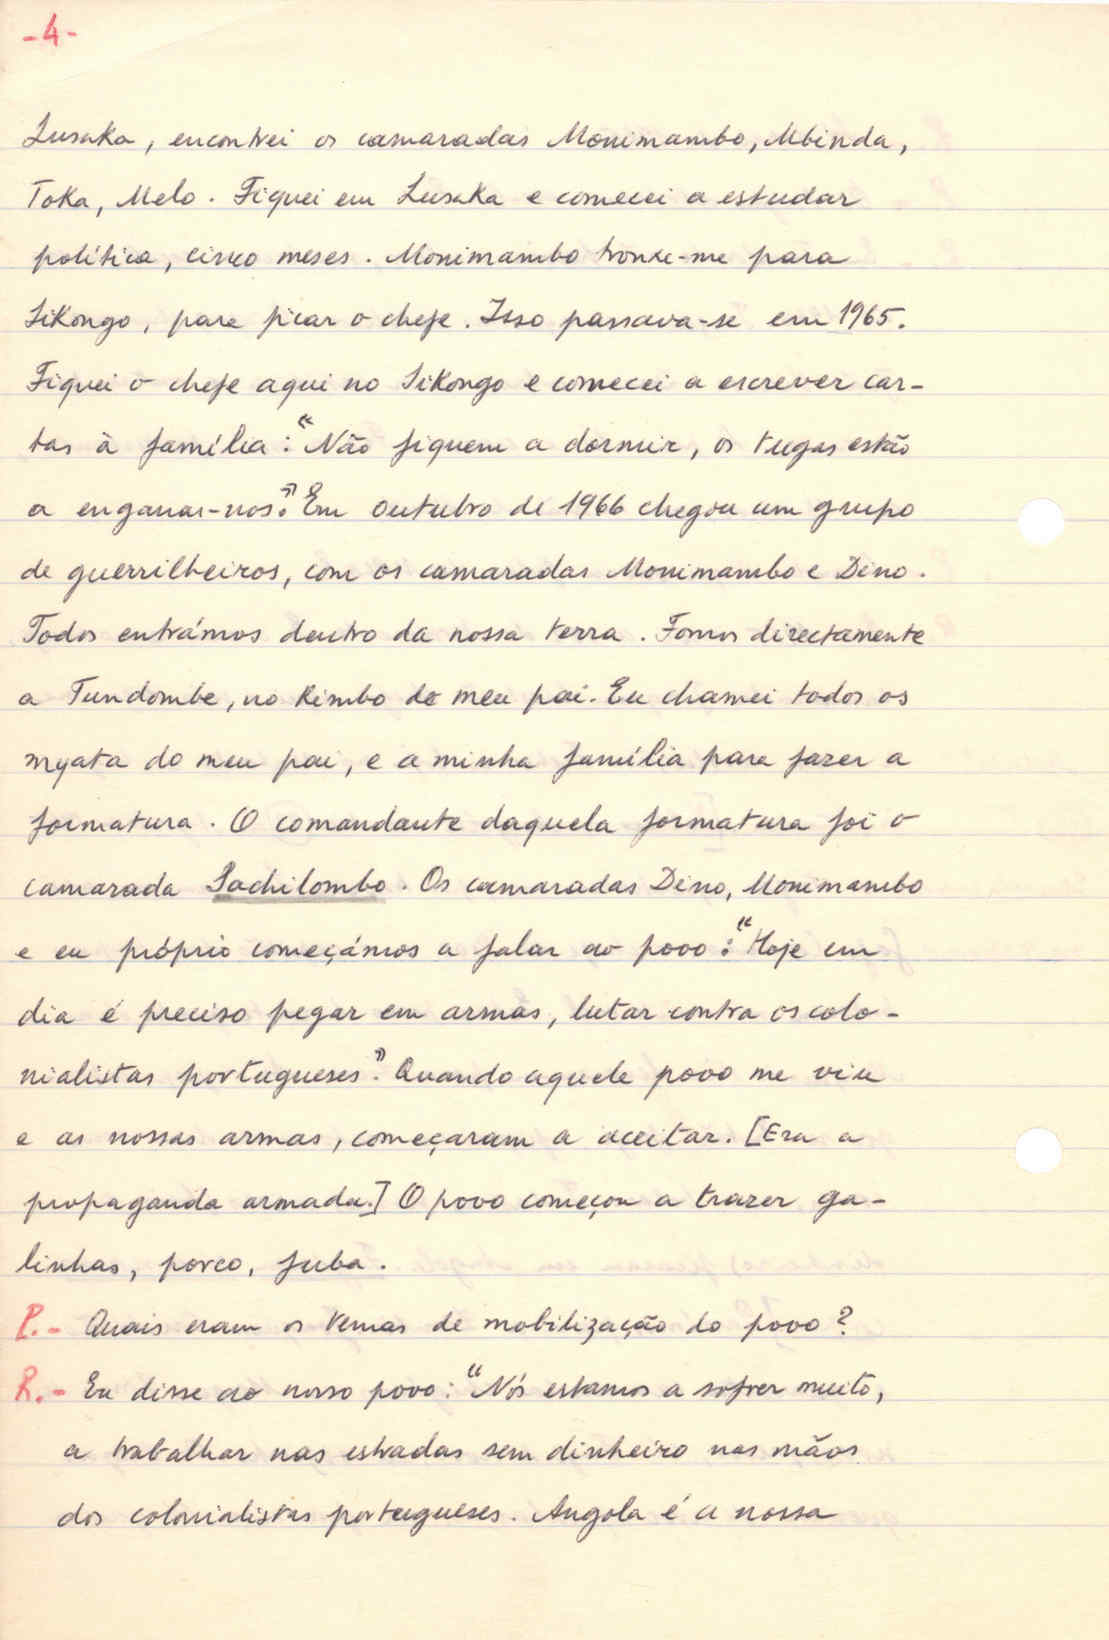 -4-
Lusaka, encontrei os camaradas Monimambo, Mbinda,
Toka, Melo. Fiquei em Lusaka e comecei a estudar
política, cinco meses. Monimambo trouxe-me para
Sikongo, para ficar o chefe. Isso passava-se em 1965.
Fiquei o chefe aqui no Sikongo e comecei a escrever car-
tas à família: "Não fiquem a dormir, os tugas estão
a enganar-nos". Em outubro de 1966 chegou um grupo
de guerrilheiros, com os camaradas Monimambo e Dino.
Todos entrámos dentro da nossa terra. Fomos directamente
a Tundombe, no kimbo do meu pai. Eu chamei todos os
myata do meu pai, e a minha família para fazer a
formatura. O comandante daquela formatura foi o
camarada Sachilombo. Os camaradas Dino, Monimambo
e eu próprio começámos a falar ao povo: "Hoje em
dia é preciso pegar em armas, lutar contra os colo-
nialistas portugueses". Quando aquele povo me viu
e as nossas armas, começaram a aceitar. [Era a
propaganda armada.] O povo começou a trazer ga-
linhas, porco, fuba.
P.- Quais eram os temas de mobilização do povo?
R.- Eu disse ao nosso povo: "Nós estamos a sofrer muito,
a trabalhar nas estradas sem dinheiro nas mãos
dos colonialistas portugueses. Angola é a nossa